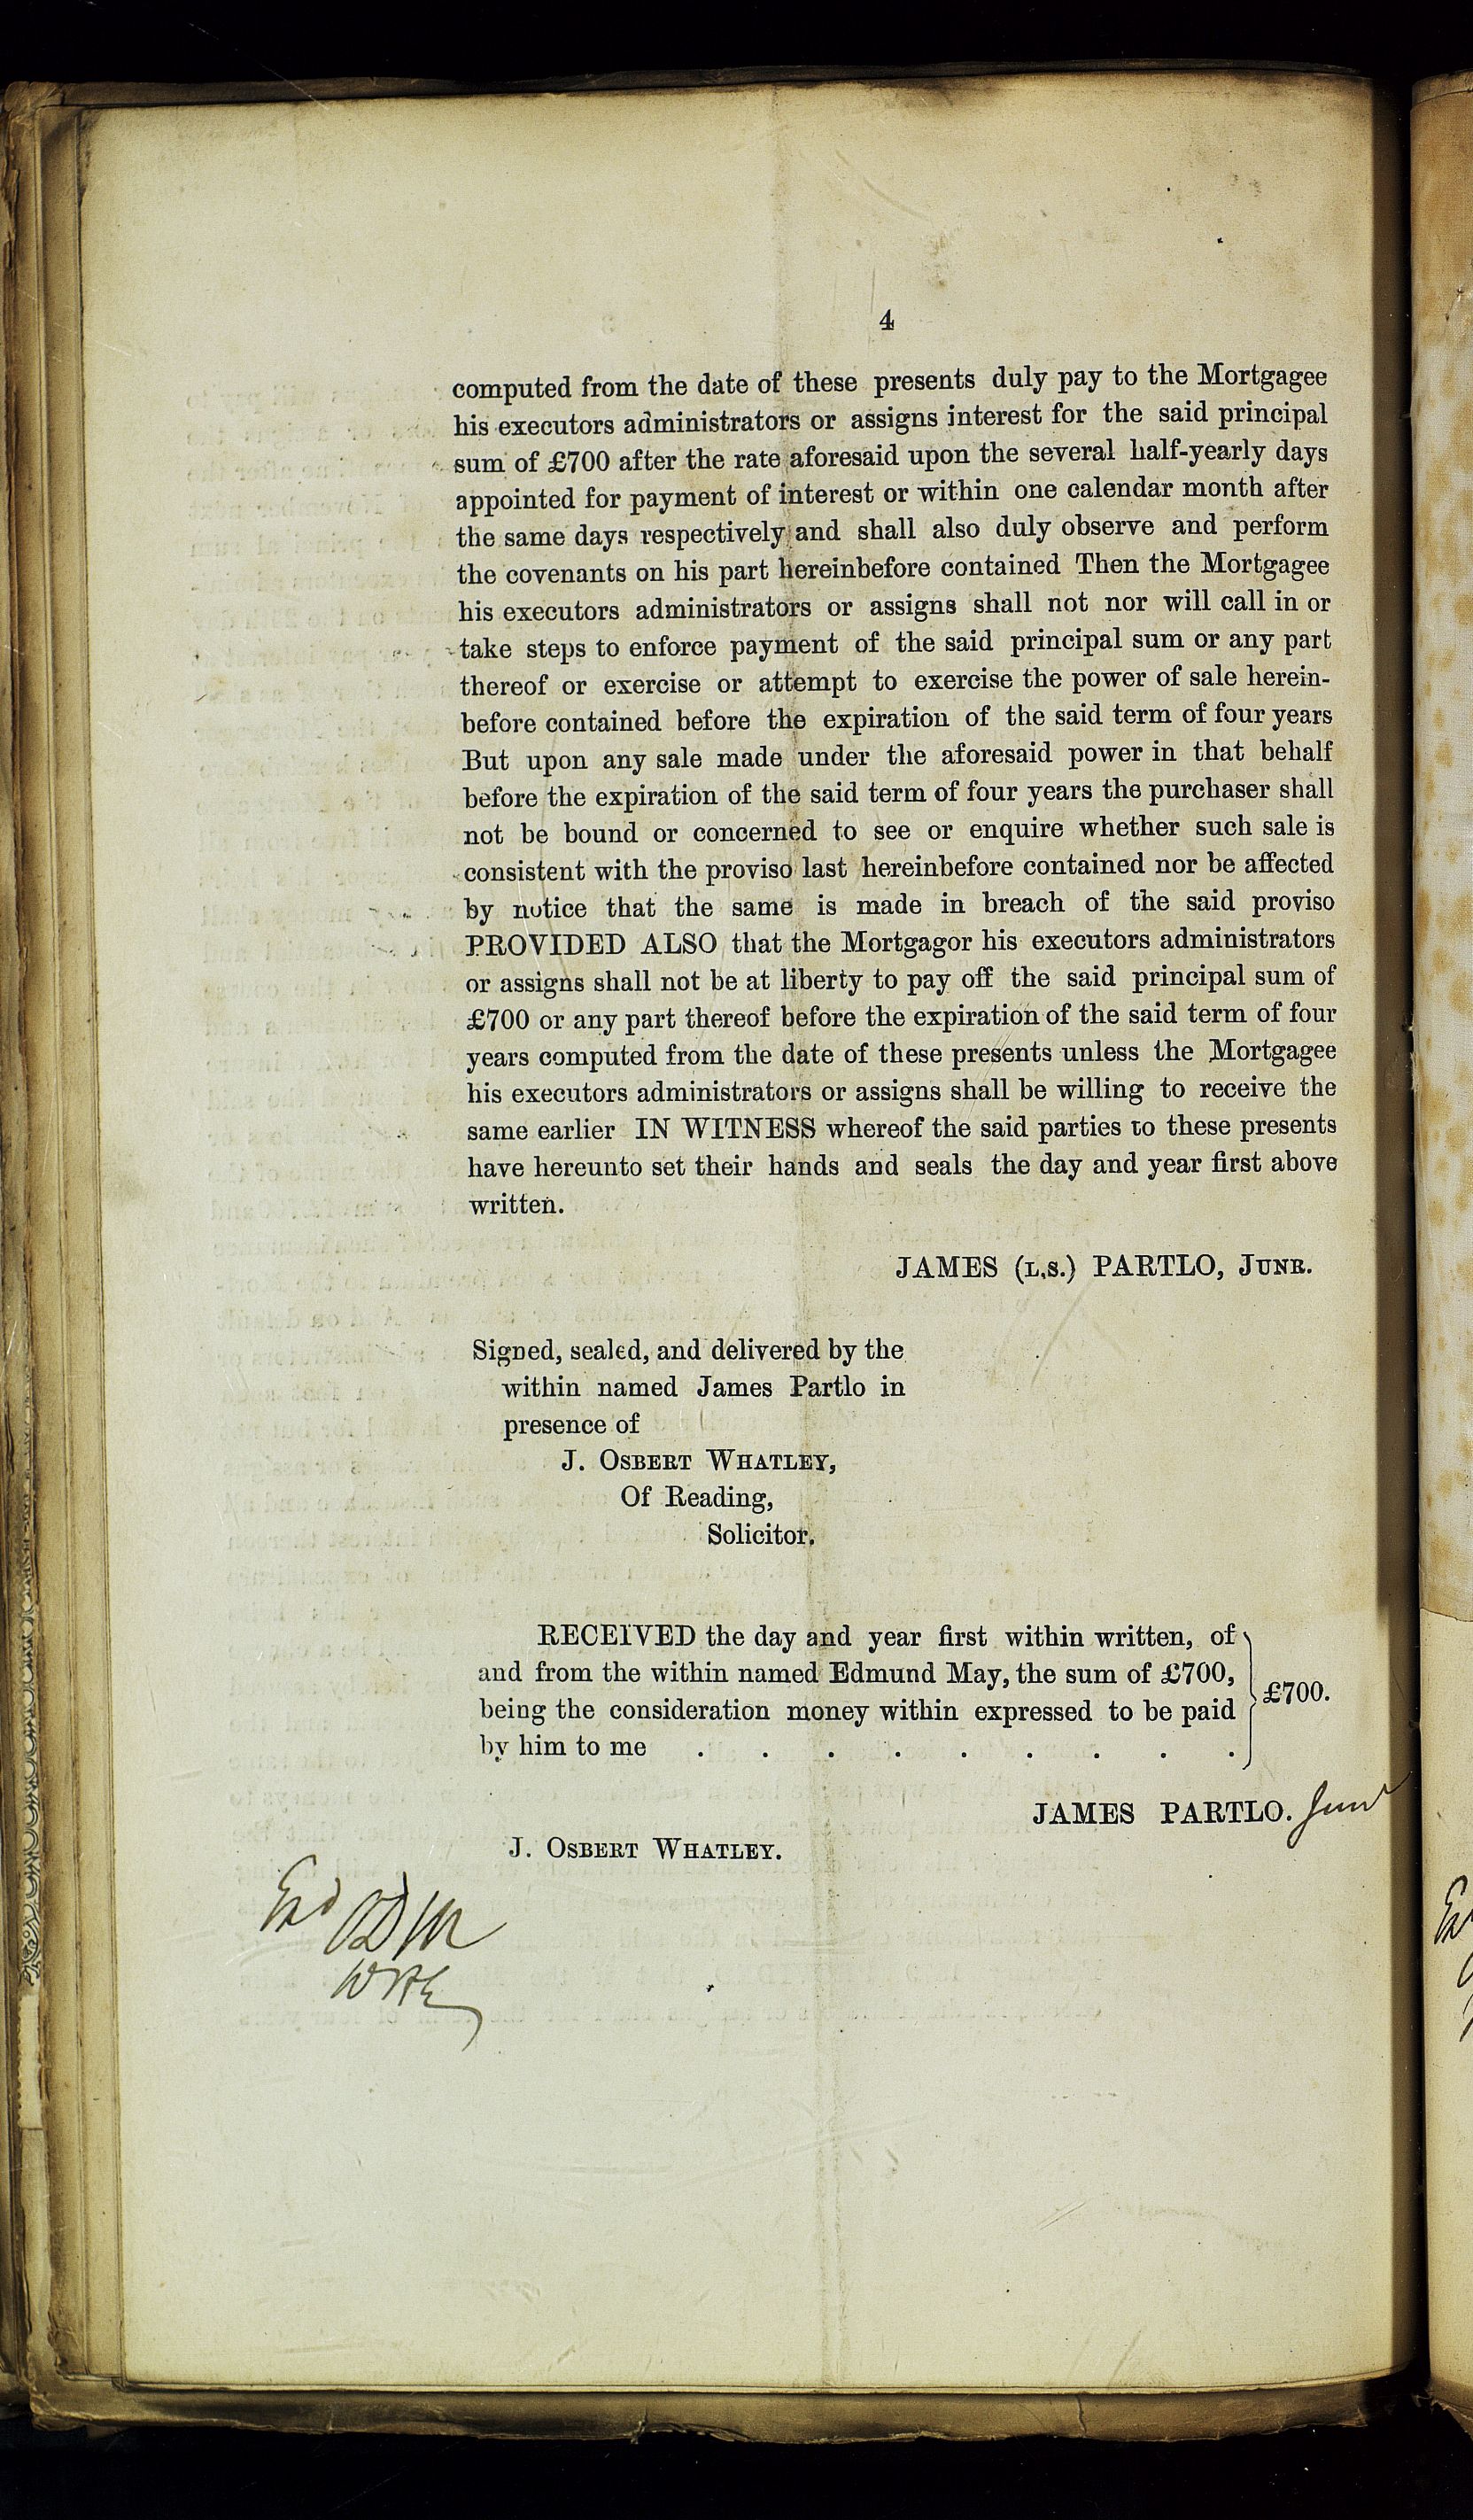 4
computed from the date of these presents duly pay to the Mortgagee
his executors administrators or assigns interest for the said principal
sum of £700 after the rate aforesaid upon the several half-yearly days
appointed for payment of interest or within one calendar month after
the same days respectively and shall also duly observe and perform
the covenants on his part hereinbefore contained Then the Mortgagee
his executors administrators or assigns shall not nor will call in or
take steps to enforce payment of the said principal sum or any part
thereof or exercise or attempt to exercise the power of sale herein-
before contained before the expiration of the said term of four years
But upon any sale made under the aforesaid power in that behalf
before the expiration of the said term of four years the purchaser shall
not be bound or concerned to see or enquire whether such sale is
consistent with the proviso last hereinbefore contained nor be affected
by notice that the same is made in breach of the said proviso
PROVIDED ALSO that the Mortgagor his executors administrators
or assigns shall not be at liberty to pay off the said principal sum of
£700 or any part thereof before the expiration of the said term of four
years computed from the date of these presents unless the Mortgagee
his executors administrators or assigns shall be willing to receive the
same earlier IN WITNESS whereof the said parties to these presents
have hereunto set their hands and seals the day and year first above
written.
JAMES (L.S.) PARTLO, JUNR.
Signed, sealed, and delivered by the
within named James Partlo in
presence of
J. OSBERT WHATLEY,
Of Reading,
Solicitor.
RECEIVED the day and year first within written, of
and from the within named Edmund May, the sum of £700,
being the consideration money within expressed to be paid
by him to me . . . . . . . . .
£700.
JAMES PARTLO. Junr
J. OSBERT WHATLEY.
Exd